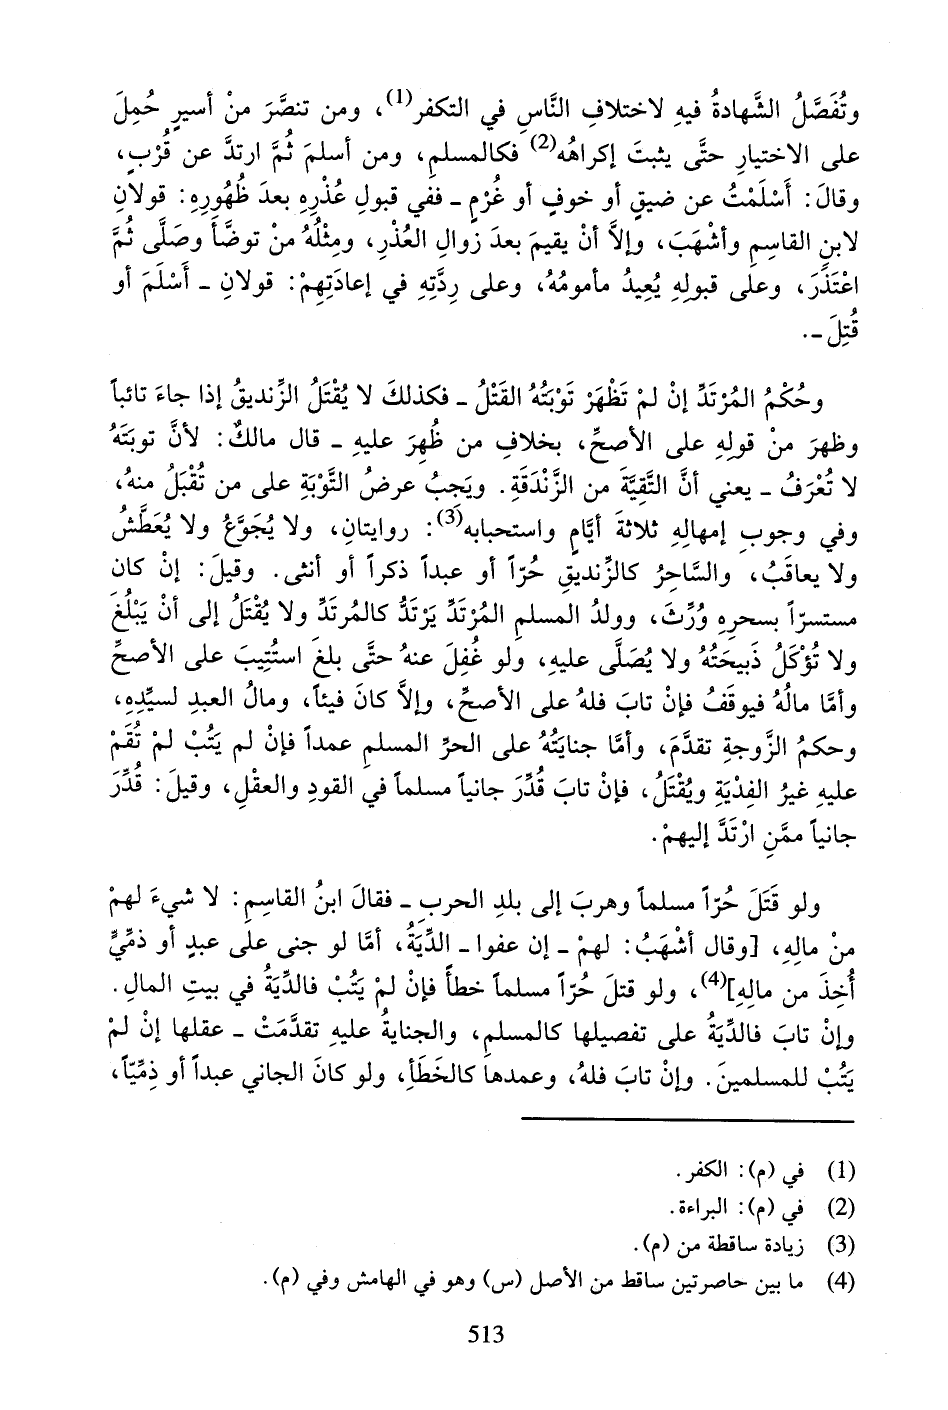 وتُفَصَّلُ الشَّهادةُ فيهِ لاختلافِ النَّاسِ في التكفر(1)، ومن تنصَّرَ منْ أسيرٍ حُمِلَ
على الاختيارِ حتَّى يثبتَ إكراهُه(2) فكالمسلمِ، ومن أسلمَ ثُمَّ ارتدَّ عن قُرْبٍ،
وقالَ: أَسْلَمْتُ عن ضيقٍ أو خوفٍ أو غُرْمٍ ـ ففي قبولِ عُذْرِهِ بعدَ ظُهُورِهِ: قولانِ
لابنِ القاسِمِ وأشْهَبَ، وإلاَّ أنْ يقيمَ بعدَ زوالِ العُذْرِ، ومِثْلُهُ منْ توضَّأَ وصَلَّى ثُمَّ
اعْتَذَرَ، وعلى قبولِهِ يُعِيدُ مأمومُهُ، وعلى رِدَّتِهِ في إعادَتِهِمْ: قولانِ ـ أَسْلَمَ أو
قُتِلَ ـ.
وحُكْمُ المُرْتَدِّ إنْ لمْ تَظْهَرْ تَوْبَتُهُ القَتْلُ ـ فكذلكَ لا يُقْتَلُ الزِّنديقُ إذا جاءَ تائباً
وظهرَ منْ قولِهِ على الأصحِّ، بخلافِ من ظُهِرَ عليهِ ـ قال مالكٌ: لأنَّ توبَتَهُ
لا تُعْرَفُ ـ يعني أنَّ التَّقِيَّةَ من الزَّنْدَقَةِ. ويَجِبُ عرضُ التَّوْبَةِ على من تُقْبَلُ منهُ،
وفي وجوبِ إمهالِهِ ثلاثةَ أيَّامٍ واستحبابه(3): روايتانِ، ولا يُجَوَّعُ ولا يُعَطَّشُ
ولا يعاقبُ، والسَّاحِرُ كالزِّنديقِ حُرّاً أو عبداً ذكراً أو أنثى. وقيلَ: إنْ كان
مستسرّاً بسحرِهِ وُرِّثَ، وولدُ المسلمِ المُرْتَدِّ يَرْتَدُّ كالمُرتَدِّ ولا يُقْتَلُ إلى أنْ يَبْلُغَ
ولا تُؤْكَلُ ذَبيحَتُهُ ولا يُصَلَّى عليهِ، ولو غُفِلَ عنهُ حتَّى بلغَ استُتِيبَ على الأصحِّ
وأمَّا مالُهُ فيوقَفُ فإنْ تابَ فلهُ على الأصحِّ، وإلاَّ كانَ فيئاً، ومالُ العبدِ لسيِّدِهِ،
وحكمُ الزَّوجةِ تقدَّمَ، وأمَّا جنايَتُهُ على الحرِّ المسلمِ عمداً فإنْ لم يَتُبْ لمْ تُقَمْ
عليهِ غيرُ الفِدْيَةِ ويُقْتَلُ، فإنْ تابَ قُدِّرَ جانياً مسلماً في القودِ والعقْلِ، وقيلَ: قُدِّرَ
جانياً ممَّنِ ارْتَدَّ إليهِمْ.
ولو قَتَلَ حُرّاً مسلماً وهربَ إلى بلدِ الحربِ ـ فقالَ ابنُ القاسِمِ: لا شيءَ لهمْ
منْ مالِهِ، [وقال أشْهَبُ: لهمْ ـ إن عفوا ـ الدِّيَةُ، أمَّا لو جنى على عبدٍ أو ذمِّيٍّ
أُخِذَ من مالِهِ](4)، ولو قتلَ حُرّاً مسلماً خطأً فإنْ لمْ يَتُبْ فالدِّيَةُ في بيتِ المالِ.
وإنْ تابَ فالدِّيَةُ على تفصيلِها كالمسلمِ، والجنايةُ عليهِ تقدَّمَتْ ـ عقلها إنْ لمْ
يَتُبْ للمسلمينَ. وإنْ تابَ فلهُ، وعمدها كالخَطَأِ، ولو كانَ الجاني عبداً أو ذِمِّيّاً،
(1) في (م): الكفر.
(2) في (م): البراءة.
(3) زيادة ساقطة من (م).
(4) ما بين حاصرتين ساقط من الأصل (س) وهو في الهامش وفي (م).
513